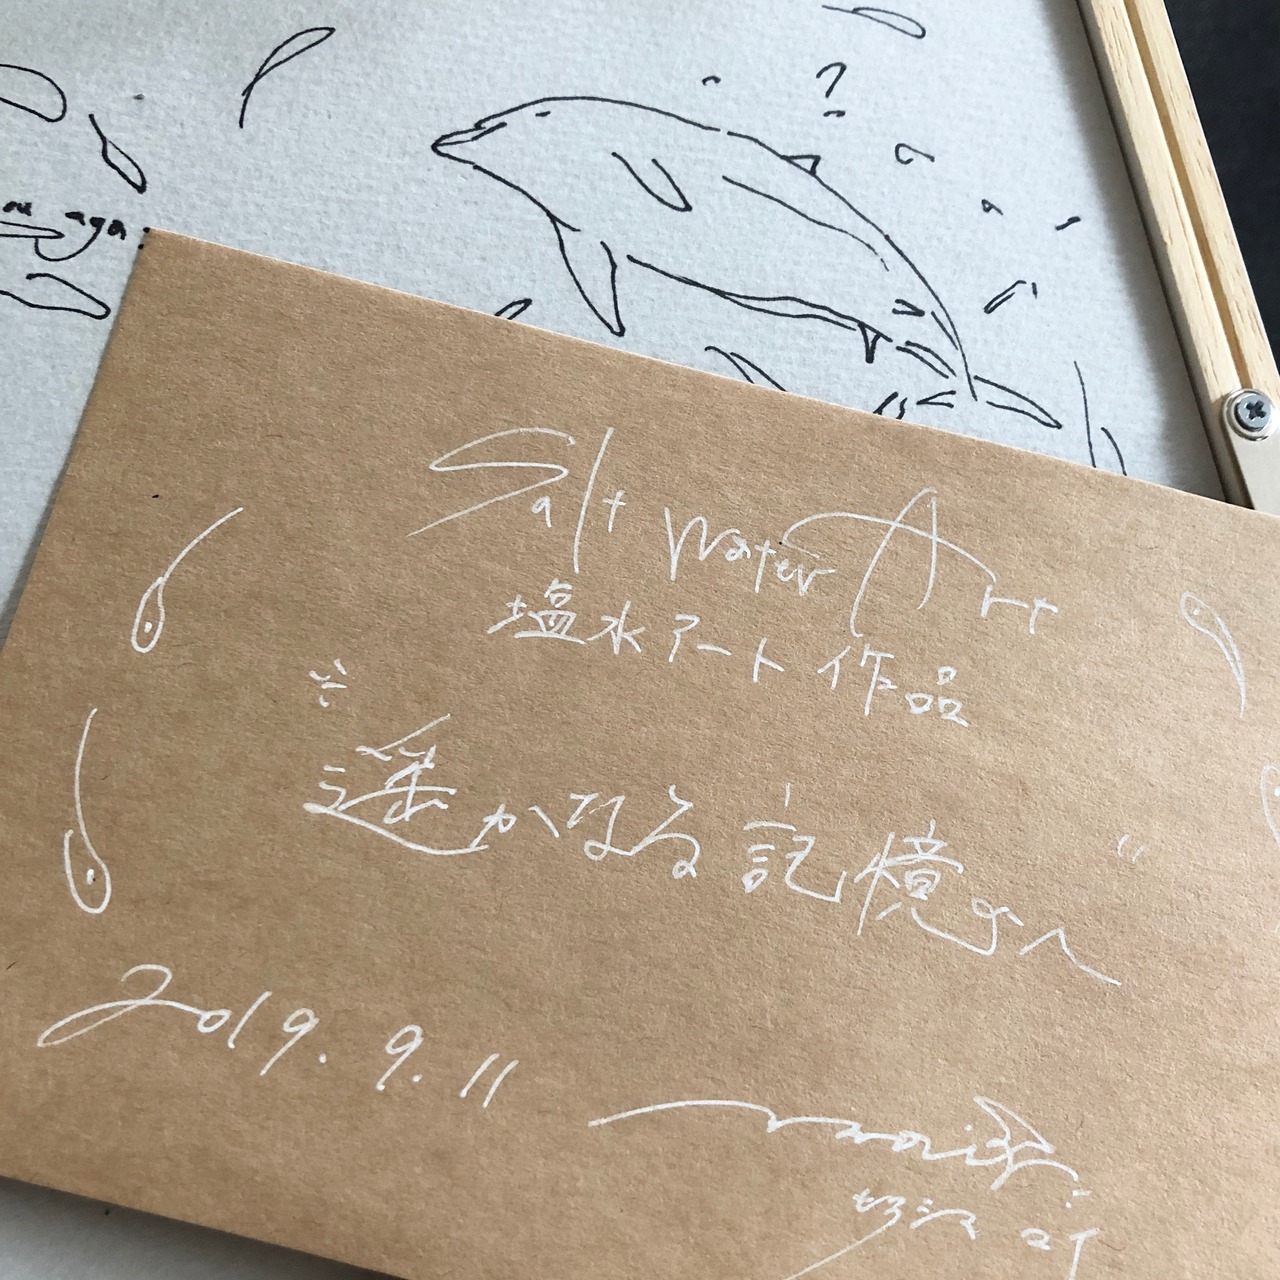 aya
Salt Water Art
塩水アート 作品
遥かなる記憶へ
2019. 9. 11